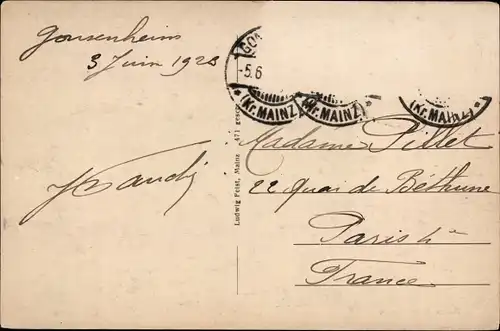 Gonsenheim
3 Juin 1928
GO
-5.6
* (Kr. MAINZ
* (Kr. MAINZ) *
(Kr. MAINZ
Ludwig Feist, Mainz 471 gesc
Madame Pillet
22 Quai de Béthune
Paris
France